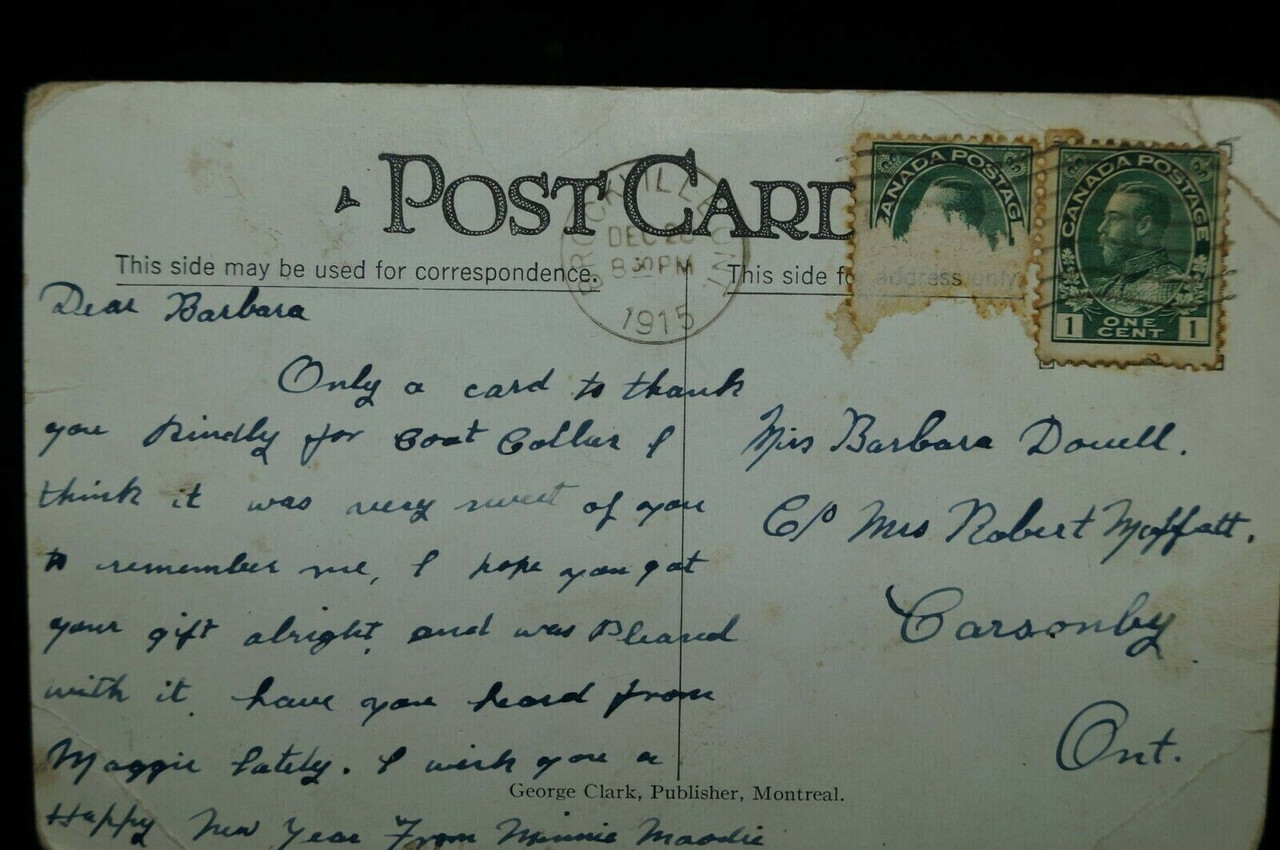 POST CARD
BROCKVILLE
DEC 28
8 30 PM
ONT
1915
This side may be used for correspondence.
This side for address only
ANADA POSTAG
CANADA POSTAGE
1 ONE CENT 1
Dear Barbara
Only a card to thank
you kindly for Coat Collar I
think it was very sweet of you
to remember me, I hope you got
your gift alright, and was Pleased
with it. have you heard from
Maggie lately. I wish you a
Happy New Year From Minnie Moodie
Miss Barbara Dowell.
C/o Mrs Robert Moffatt.
Carsonby
Ont.
George Clark, Publisher, Montreal.